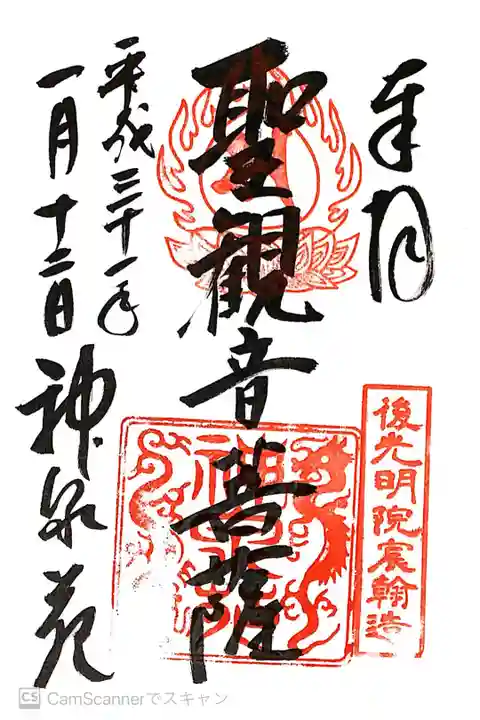 奉拝
聖観音菩薩
平成三十一年
一月十二日
神泉苑
後光明院宸翰造
CS CamScannerでスキャン